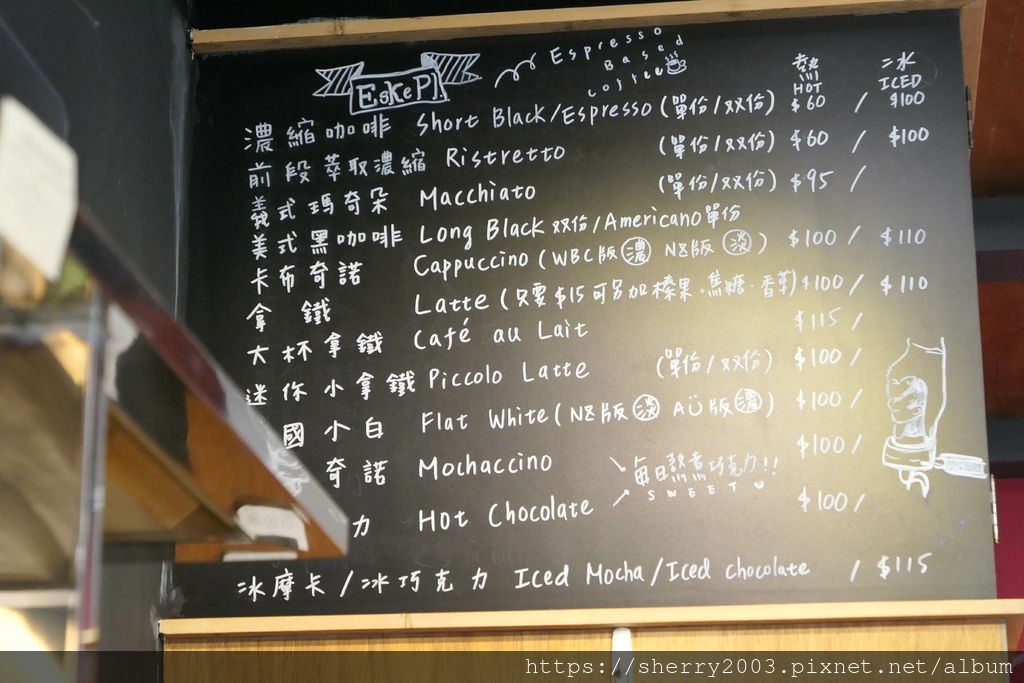 EsKePI
Espresso
Based
Coffee
熱 HOT
冰 ICED
濃縮咖啡 Short Black/Espresso (單份/双份) $60 / $100
前段萃取濃縮 Ristretto (單份/双份) $60 / $100
義式瑪奇朵 Macchiato (單份/双份) $95 /
美式黑咖啡 Long Black 双份/Americano 單份
卡布奇諾 Cappuccino (WBC版濃 NZ版淡) $100 / $110
拿鐵 Latte (只要$15可另加榛果·焦糖·香草) $100 / $110
大杯拿鐵 Café au Lait $115 /
迷你小拿鐵 Piccolo Latte (單份/双份) $100 /
國小白 Flat White (NZ版淡 AU版濃) $100 /
奇諾 Mochaccino $100 /
每日熬煮巧克力!!
SWEET
力 Hot Chocolate $100 /
冰摩卡/冰巧克力 Iced Mocha/Iced chocolate / $115
https://sherry2003.pixnet.net/album